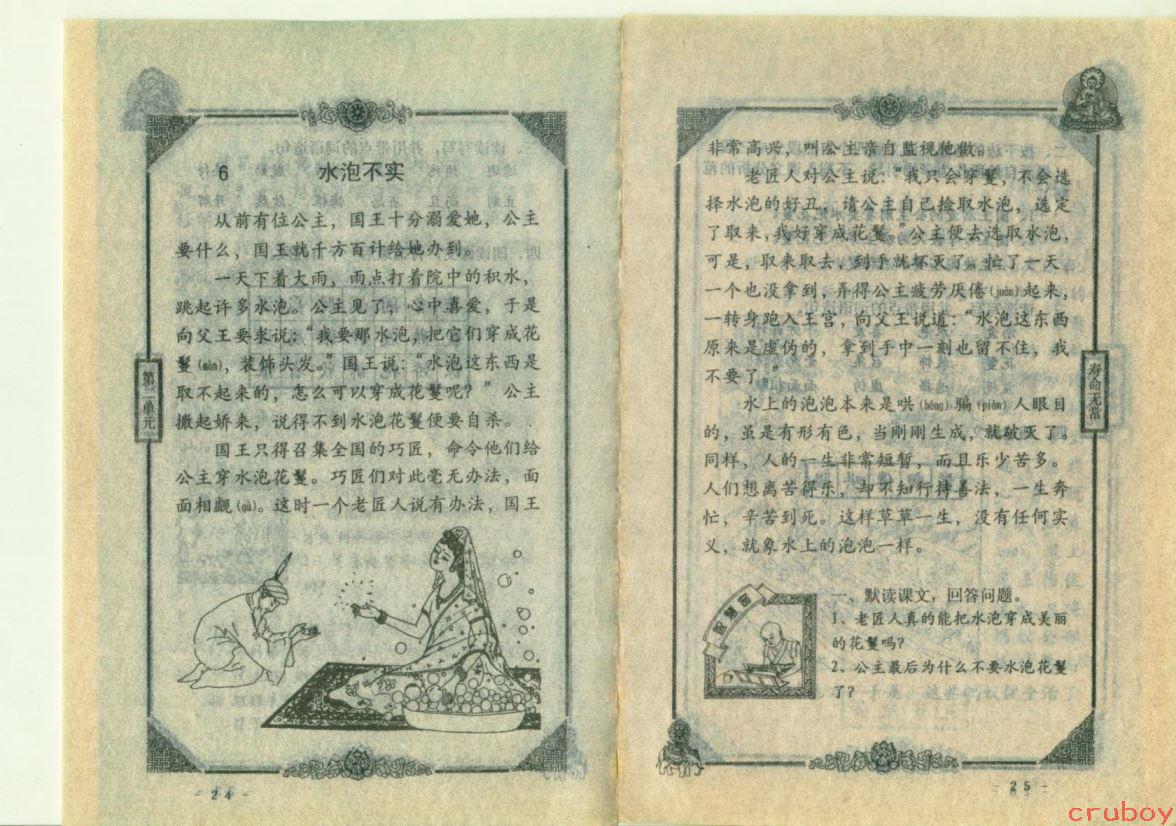 6 水泡不实
从前有位公主，国王十分溺爱她，公主
要什么，国王就千方百计给她办到。
一天下着大雨，雨点打着院中的积水，
跳起许多水泡。公主见了，心中喜爱，于是
向父王要求说：“我要那水泡，把它们穿成花
鬘(mán)，装饰头发。”国王说：“水泡这东西是
取不起来的，怎么可以穿成花鬘呢？”公主
撒起娇来，说得不到水泡花鬘便要自杀。
国王只得召集全国的巧匠，命令他们给
公主穿水泡花鬘。巧匠们对此毫无办法，面
面相觑(qù)。这时一个老匠人说有办法，国王
第二单元
- 24 -
非常高兴，叫公主亲自监视他做。
老匠人对公主说：“我只会穿鬘，不会选
择水泡的好丑，请公主自己捡取水泡，选定
了取来，我好穿成花鬘。”公主便去选取水泡，
可是，取来取去，到手就坏灭了。忙了一天，
一个也没拿到，弄得公主疲劳厌倦(juàn)起来，
一转身跑入王宫，向父王说道：“水泡这东西
原来是虚伪的，拿到手中一刻也留不住，我
不要了。”
水上的泡泡本来是哄(hǒng)骗(piàn)人眼目
的，虽是有形有色，当刚刚生成，就破灭了。
同样，人的一生非常短暂，而且乐少苦多。
人们想离苦得乐，却不知行持善法，一生奔
忙，辛苦到死。这样草草一生，没有任何实
义，就象水上的泡泡一样。
寿命无常
智慧窗
一、默读课文，回答问题。
1、老匠人真的能把水泡穿成美丽
的花鬘吗？
2、公主最后为什么不要水泡花鬘
了？
- 25 -
cruboy